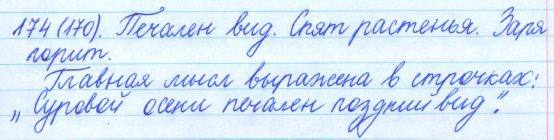 174 (170). Печален вид. Спят растенья. Заря
горит.
Главная мысл выражена в строчках:
„Суровой осени печален поздний вид".